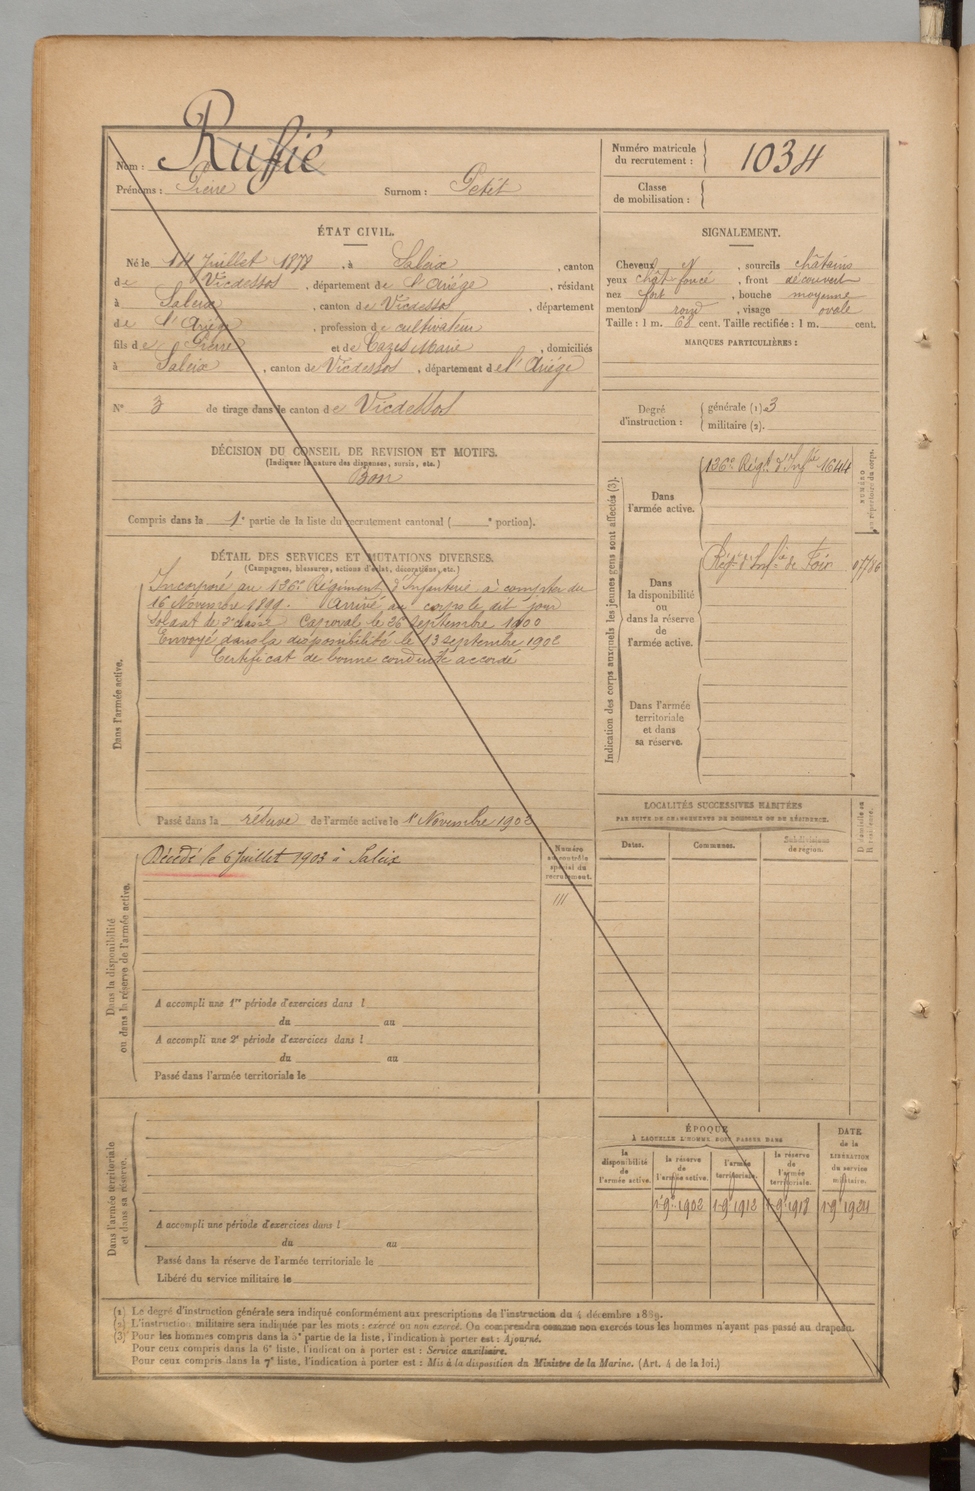 Nom : Rufié
Prénoms : Pierre Surnom : Petit
Numéro matricule du recrutement : 1034
Classe de mobilisation :
ÉTAT CIVIL.
Né le 14 Juillet 1878, à Saleix, canton
de Vicdessos, département de l'Ariége, résidant
à Saleix, canton de Vicdessos, département
de l'Ariége, profession de cultivateur
fils de Pierre et de Cazes Marie, domiciliés
à Saleix, canton de Vicdessos, département de l'Ariége
N° 3 de tirage dans le canton de Vicdessos
SIGNALEMENT.
Cheveux N, sourcils châtains
yeux chât foncé, front découvert
nez fort, bouche moyenne
menton rond, visage ovale
Taille : 1 m. 68 cent. Taille rectifiée : 1 m. cent.
MARQUES PARTICULIÈRES :
Degré d'instruction : générale (1) 3
militaire (2).
DÉCISION DU CONSEIL DE REVISION ET MOTIFS.
(Indiquer la nature des dispenses, sursis, etc.)
Bon
Compris dans la 1e partie de la liste du recrutement cantonal ( e portion).
DÉTAIL DES SERVICES ET MUTATIONS DIVERSES.
(Campagnes, blessures, actions d'éclat, décorations, etc.)
Dans l'armée active.
Incorporé au 136e Régiment d'Infanterie à compter du
16 Novembre 1899. Arrivé au corps le dit jour
Soldat de 2e classe Caporal le 26 septembre 1900
Envoyé dans la disponibilité le 13 septembre 1902
Certificat de bonne conduite accordé
Passé dans la réserve de l'armée active le 1er Novembre 1902
Dans la disponibilité ou dans la réserve de l'armée active.
Décédé le 6 Juillet 1903 à Saleix
Numéro au contrôle spécial du recrutement.
111
A accompli une 1re période d'exercices dans l
du au
A accompli une 2e période d'exercices dans l
du au
Passé dans l'armée territoriale le
Dans l'armée territoriale et dans sa réserve.
A accompli une période d'exercices dans l
du au
Passé dans la réserve de l'armée territoriale le
Libéré du service militaire le
Indication des corps auxquels les jeunes gens sont affectés (3).
NUMÉRO au répertoire du corps.
Dans l'armée active.
136e Régt d'Infie 1644
Dans la disponibilité ou dans la réserve de l'armée active.
Régt d'Infie de Foix 07786
Dans l'armée territoriale et dans sa réserve.
LOCALITÉS SUCCESSIVES HABITÉES
PAR SUITE DE CHANGEMENTS DE DOMICILE OU DE RÉSIDENCE.
Dates. Communes. Subdivisions de région. D. domicile ou R. résidence.
ÉPOQUE
À LAQUELLE L'HOMME DOIT PASSER DANS
la disponibilité de l'armée active. la réserve de l'armée active. l'armée territoriale. la réserve de l'armée territoriale.
DATE de la LIBÉRATION du service militaire.
1er 9bre 1902 1er 9bre 1912 1er 9bre 1918 1er 9bre 1924
(1) Le degré d'instruction générale sera indiqué conformément aux prescriptions de l'instruction du 4 décembre 1889.
(2) L'instruction militaire sera indiquée par les mots : exercé ou non exercé. On comprendra comme non exercés tous les hommes n'ayant pas passé au drapeau.
(3) Pour les hommes compris dans la 5e partie de la liste, l'indication à porter est : Ajourné.
Pour ceux compris dans la 6e liste, l'indication à porter est : Service auxiliaire.
Pour ceux compris dans la 7e liste, l'indication à porter est : Mis à la disposition du Ministre de la Marine. (Art. 4 de la loi.)